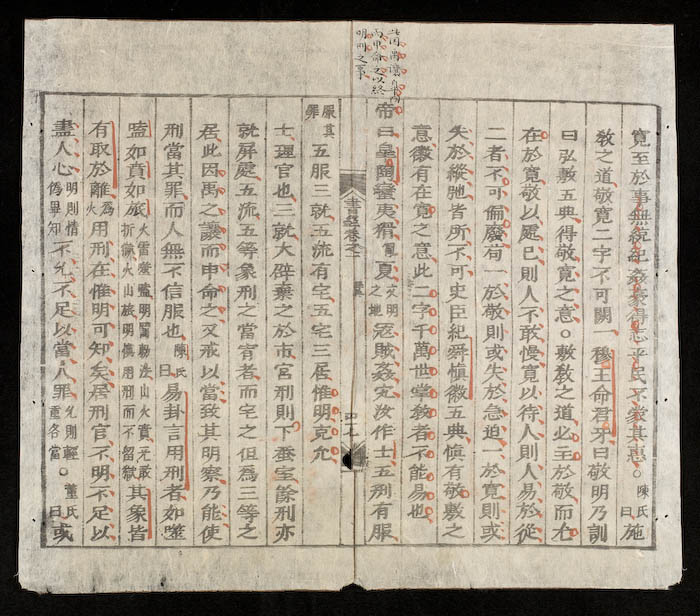 此因禹讓臯陶
而申命之以終
明刑之事
寬至於事無統紀姦豪得志平民不蒙其惠。陳氏曰施
敎之道敬寬二字不可闕一穆王命君牙曰敬明乃訓
曰弘敷五典得敬寬之意。敷敎之道必至於敬而尤
在於寬敬以處已則人不敢慢寬以待人則人易於從
二者不可偏廢苟一於敬則或失於急迫一於寬則或
失於縱弛皆所不可史臣紀舜愼徽五典愼有敬敷之
意徽有在寬之意此二字千萬世掌敎者不能易也
帝曰臯陶蠻夷猾亂夏文明之地寇賊姦宄汝作士五刑有服
書經卷之一
服其罪五服三就五流有宅五宅三居惟明克允
士理官也三就大辟棄之於市宮刑則下蚕室餘刑亦
就屏處五流五等象刑之當宥者而宅之但爲三等之
居此因禹之讓而申命之又戒以當致其明察乃能使
刑當其罪而人無不信服也陳氏曰易卦言用刑者如噬
嗑如賁如旅火雷噬嗑明罰勑法山火賁无敢折獄火山旅明愼用刑而不留獄其象皆
有取於離爲火用刑在惟明可知矣居刑官不明不足以
盡人心明則情僞畢知不允不足以當人罪允則輕重各當。董氏曰或